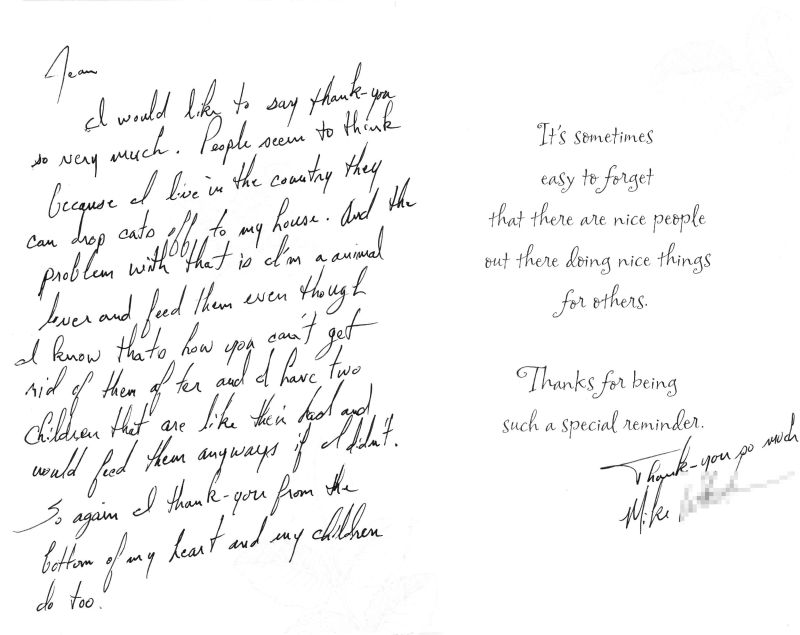 Jean
I would like to say thank-you
so very much. People seem to think
because I live in the country they
can drop cats off to my house. And the
problem with that is I'm a animal
lover and feed them even though
I know thats how you can't get
rid of them after and I have two
children that are like their dad and
would feed them anyways if I didn't.
So again I thank-you from the
bottom of my heart and my children
do too.
It's sometimes
easy to forget
that there are nice people
out there doing nice things
for others.
Thanks for being
such a special reminder.
Thank-you so much
Mike